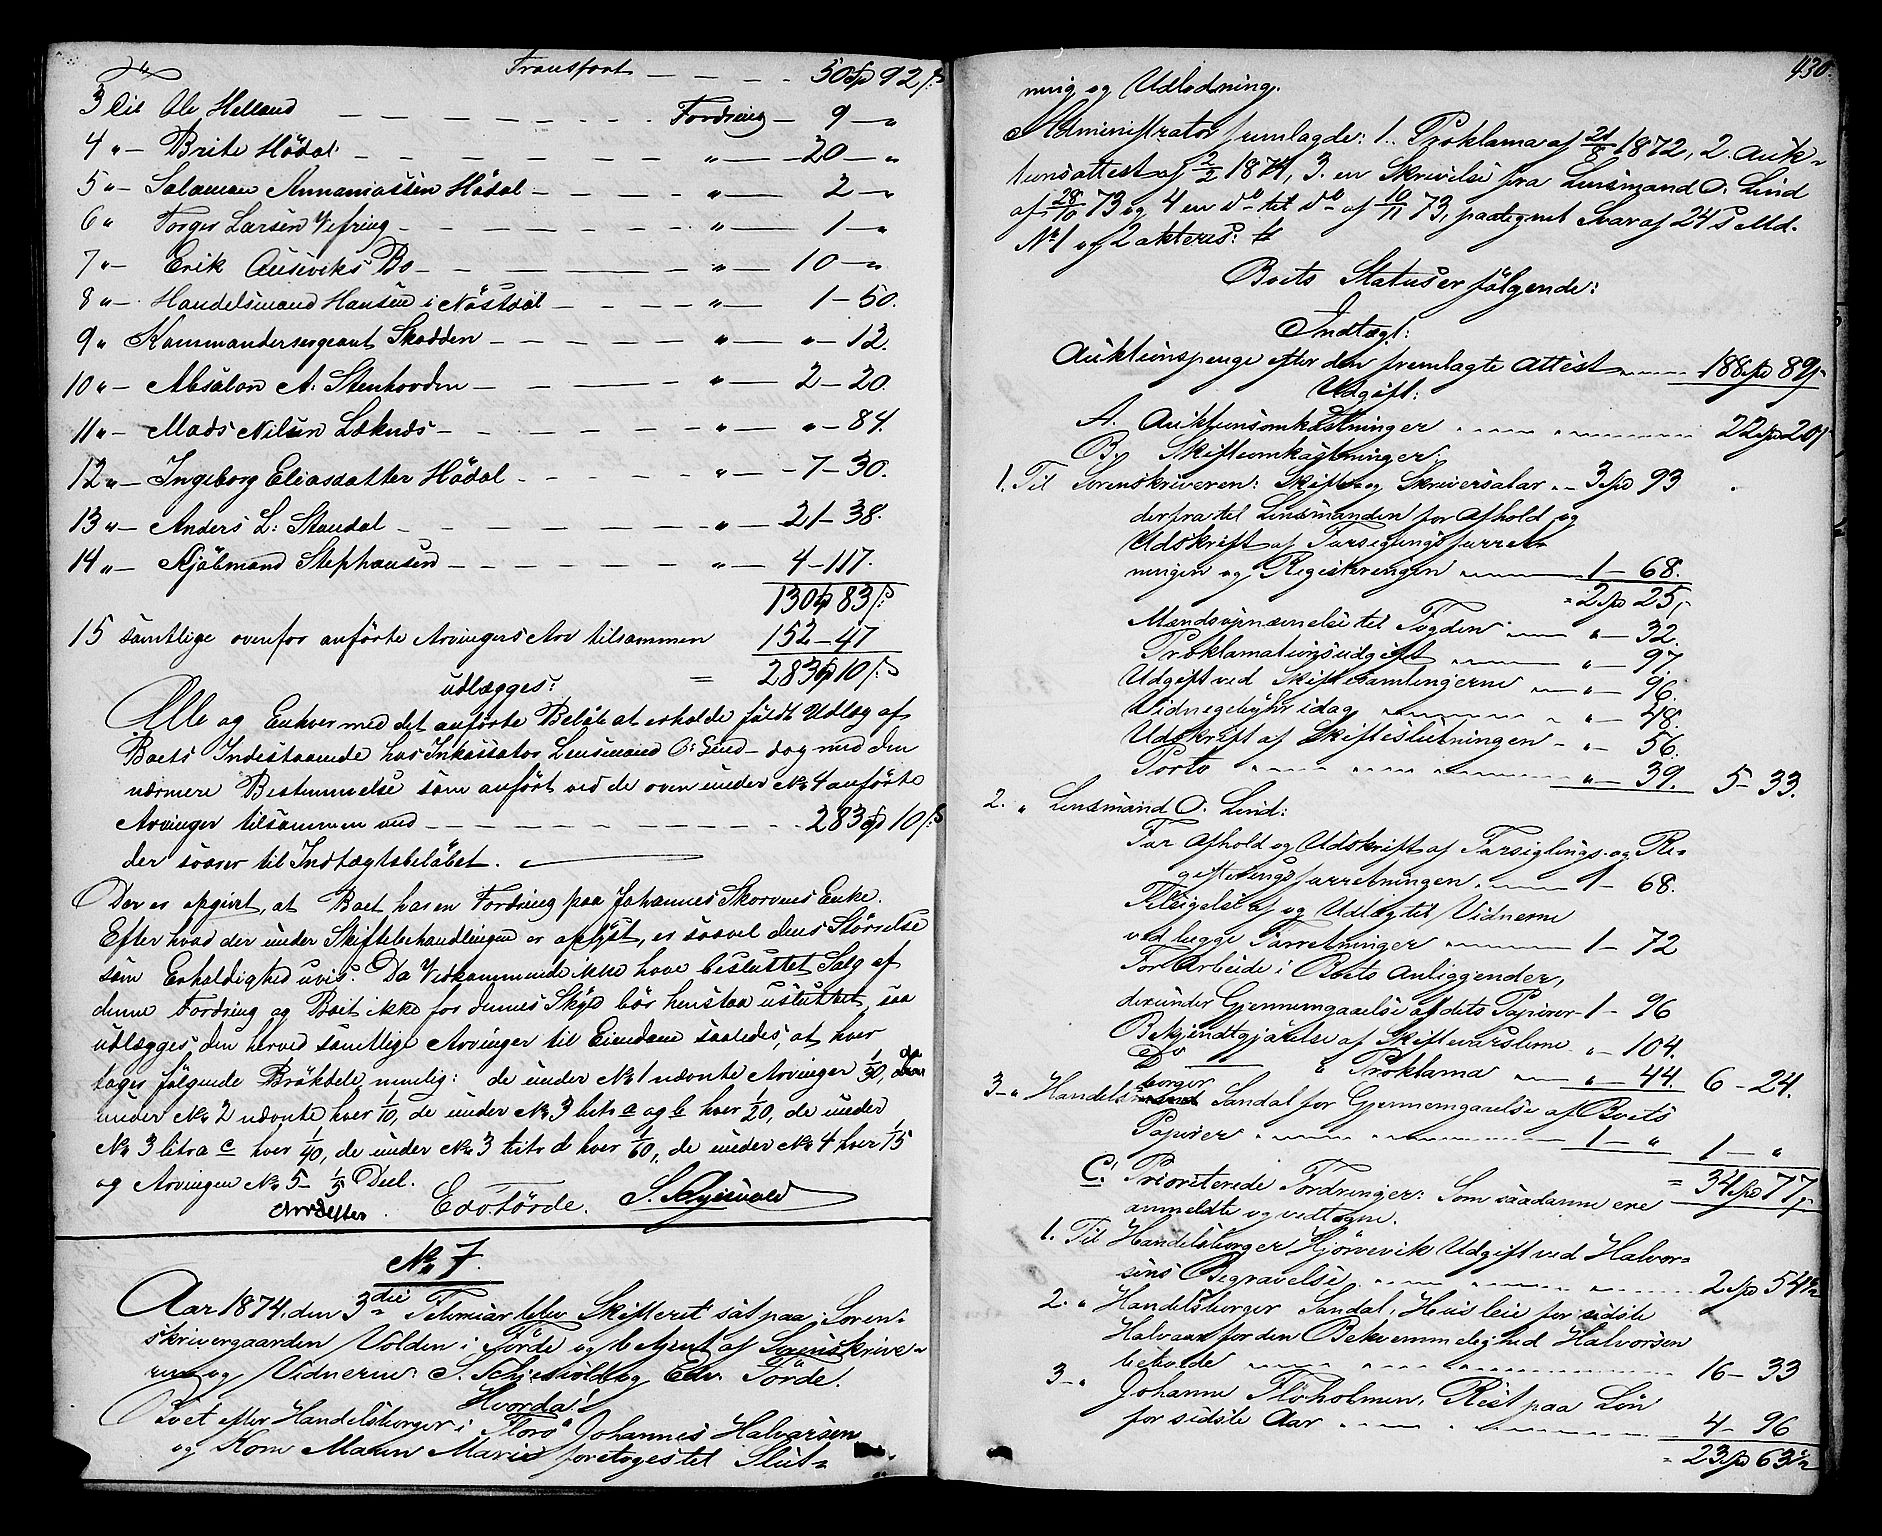 Transport — — — 50 Spd 92 s:
3 Til Ole Helland — — — Fordring — 9 — „
4 „ — Brite Hödal — — — „ — 20 — „
5 „ — Salamon Annaniassen Hödal — — „ — 2 — „
6 „ Torger Larsen Vefring — — „ — 1 — „
7 „ — Erik Auseviks Bo — — „ — 10 — „
8 „ — Handelsmand Hansen i Nöstdal — — „ — 1 — 50.
9 „ Kommandersergeant Skadden — — „ — „ — 12.
10 „ — Absalon A. Stenhovden — — „ — 2 — 20.
11 „ — Mads Nilsen Løknæs — — „ — „ — 84.
12 „ — Ingeborg Eliasdatter Hödal — — „ — 7 — 30.
13 „ — Anders L: Standal — — „ — 21 — 38.
14 „ — Kjölmand Stephansen — — „ — 4 — 117.
130 Spd 83 s:
15 samtlige ovenfor anförte Arvingers Arv tilsammen 152 — 47
= 283 Spd 10 s:
udlægges:
Alle og Enhver med det anförte Belöb at erholde fuldt Udlæg af
Boets Indestaaende hos Inkassator Lensmand O: Lind — dog med den
nærmere Bestemmelse som anfört ved de oven under No 4 anförte
Arvinger tilsammen med — — — 283 Spd 10 s:
der svarer til Indtægtsbelöbet.
Der er opgivet, at Boet har en Fordring paa Johannes Skorvnes Enke.
Efter hvad der under Skiftebehandlingen er oplyst, er saavel dens Störrelse
som Erholdighed uvis. Da Vedkommende ikke have besluttet Salg af
denne Fordring og Boet ikke for dennes Skyld bör henstaa usluttet, saa
udlægges den herved samtlige Arvinger til Eiendom saaledes, at hver
tager fölgende Brökdele, nemlig: de under No 1 nævnte Arvinger 1/30, de
under No 2 nævnte hver 1/10, de under No 3 litra a og b hver 1/20, de under
No 3 litra c hver 1/40, de under No 3 litr d hver 1/60, de under No 4 hver 1/15
og Arvingen No 5 — 1/5 Deel.
Edv Förde.
No 7.
Aar 1874, den 3die Februar blev Skifteret sat paa Soren-
skrivergaarden Volden i Förde og betjent af Sorenskrive-
ren og Vidnerne: S. Schjesvold og Edv. Förde.
Hvorda:
Boet efter Handelsborger i Florö Johannes Halvorsen
og Kone Maren Marie foretoges til Slut-
430.
ning og Udlodning.
Administrator fremlagde: 1. Proklama af 21/8 1872, 2. Auk-
tionsattest af 2/2 1874, 3. en Skrivelse fra Lensmand O. Lind
af 28/10 73 og 4 en do til do af 10/11 73, paategnet Svar af 24 s Md.
No 1 og 2 akteres:
Boets Status er fölgende:
Indtægt:
Auktionspenge efter den fremlagte Attest 188 Spd 89 s
Udgift:
A. Auktionsomkostninger 22 Spd 20 s
B. Skifteomkostninger:
1. Til Sorenskriveren: Skifte og Skriversalær — 3 Spd 93
derfra til Lensmanden for Afhold og
Udskrift af Forsiglingsforret-
ningen og Registreringen 1 — 68.
= 2 Spd 25 s
Mændsopnævnelse til Fogden „ — 32.
Proklamationsudgift „ — 97.
Udgift ved Skiftesamlingerne „ — 96.
Vidnegebyhr idag „ — 48.
Udskrift af Skifteslutningen „ — 56.
Porto „ — 39. 5 — 33.
2. „ Lensmand O. Lind:
For Afhold og Udskrift af Forsiglings- og Re-
gistreringsforretningen 1 — 68.
Tilsigelse af og Udlæg til Vidnerne
ved begge Forretninger 1 — 72
For Arbeide i Boets Anliggender,
derunder Gjennemgaaelse af dets Papirer 1 — 96
Bekjendtgjörelse af Skiftevarslerne „ — 104.
Do Proklama „ — 44. 6 — 24.
3 — „ Handelsborger Sandal for Gjennemgaaelse af Boets
Papirer 1 — „ 1 — „
= 34 Spd 77 s
C. Prioriterede Fordringer: Som saadanne ere
anmeldte og vedtagne.
1. Til Handelsborger Kjörvevik Udgift ved Halvor-
sens Begravelse 2 Spd 54 1/2
2. „ Handelsborger Sandal, Husleie for sidste
Halvaar for den Bekvemmelighed Halvorsen
beboede 16 — 33
3 — „ Johanne Flöholmen, Rest paa Lön
for sidste Aar 4 — 96
= 23 Spd 63 1/2